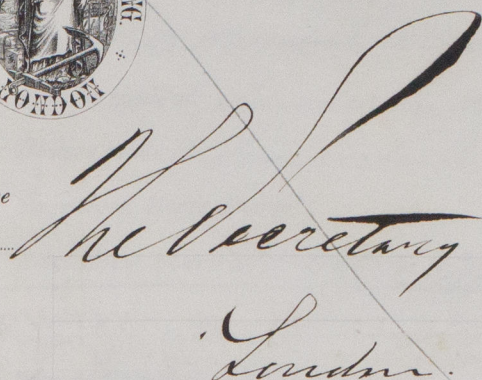 LONDON
The Secretary
London.